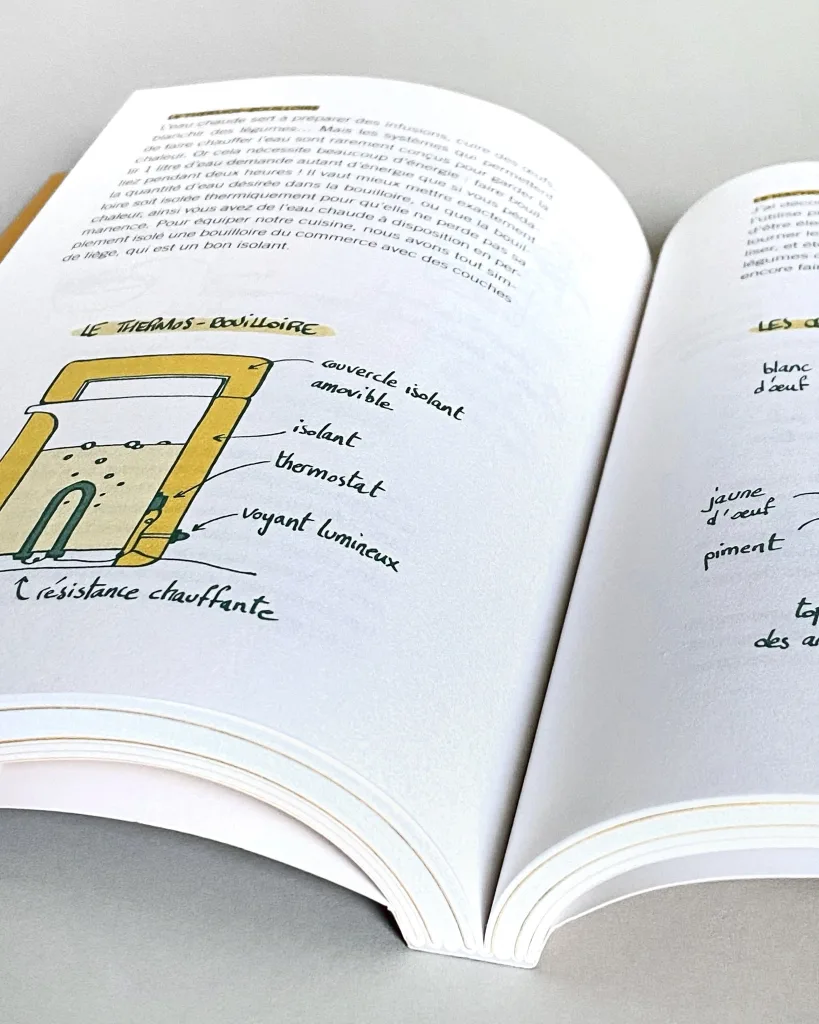 L'eau chaude sert à préparer des infusions, cuire des œufs,
blanchir des légumes... Mais les systèmes qui permettent
de faire chauffer l'eau sont rarement conçus pour garder la
chaleur. Or cela nécessite beaucoup d'énergie : faire bouil-
lir 1 litre d'eau demande autant d'énergie que si vous péda-
liez pendant deux heures ! Il vaut mieux mettre exactement
la quantité d'eau désirée dans la bouilloire, ou que la bouil-
loire soit isolée thermiquement pour qu'elle ne perde pas sa
chaleur, ainsi vous avez de l'eau chaude à disposition en per-
manence. Pour équiper notre cuisine, nous avons tout sim-
plement isolé une bouilloire du commerce avec des couches
de liège, qui est un bon isolant.
LE THERMOS-BOUILLOIRE
couvercle isolant
amovible
isolant
thermostat
voyant lumineux
résistance chauffante
J'ai déco
l'utilise p
d'être éle
tourner le
liser, et et
légumes c
encore fai
LES
blanc
d'œuf
jaune
d'œuf
piment
des